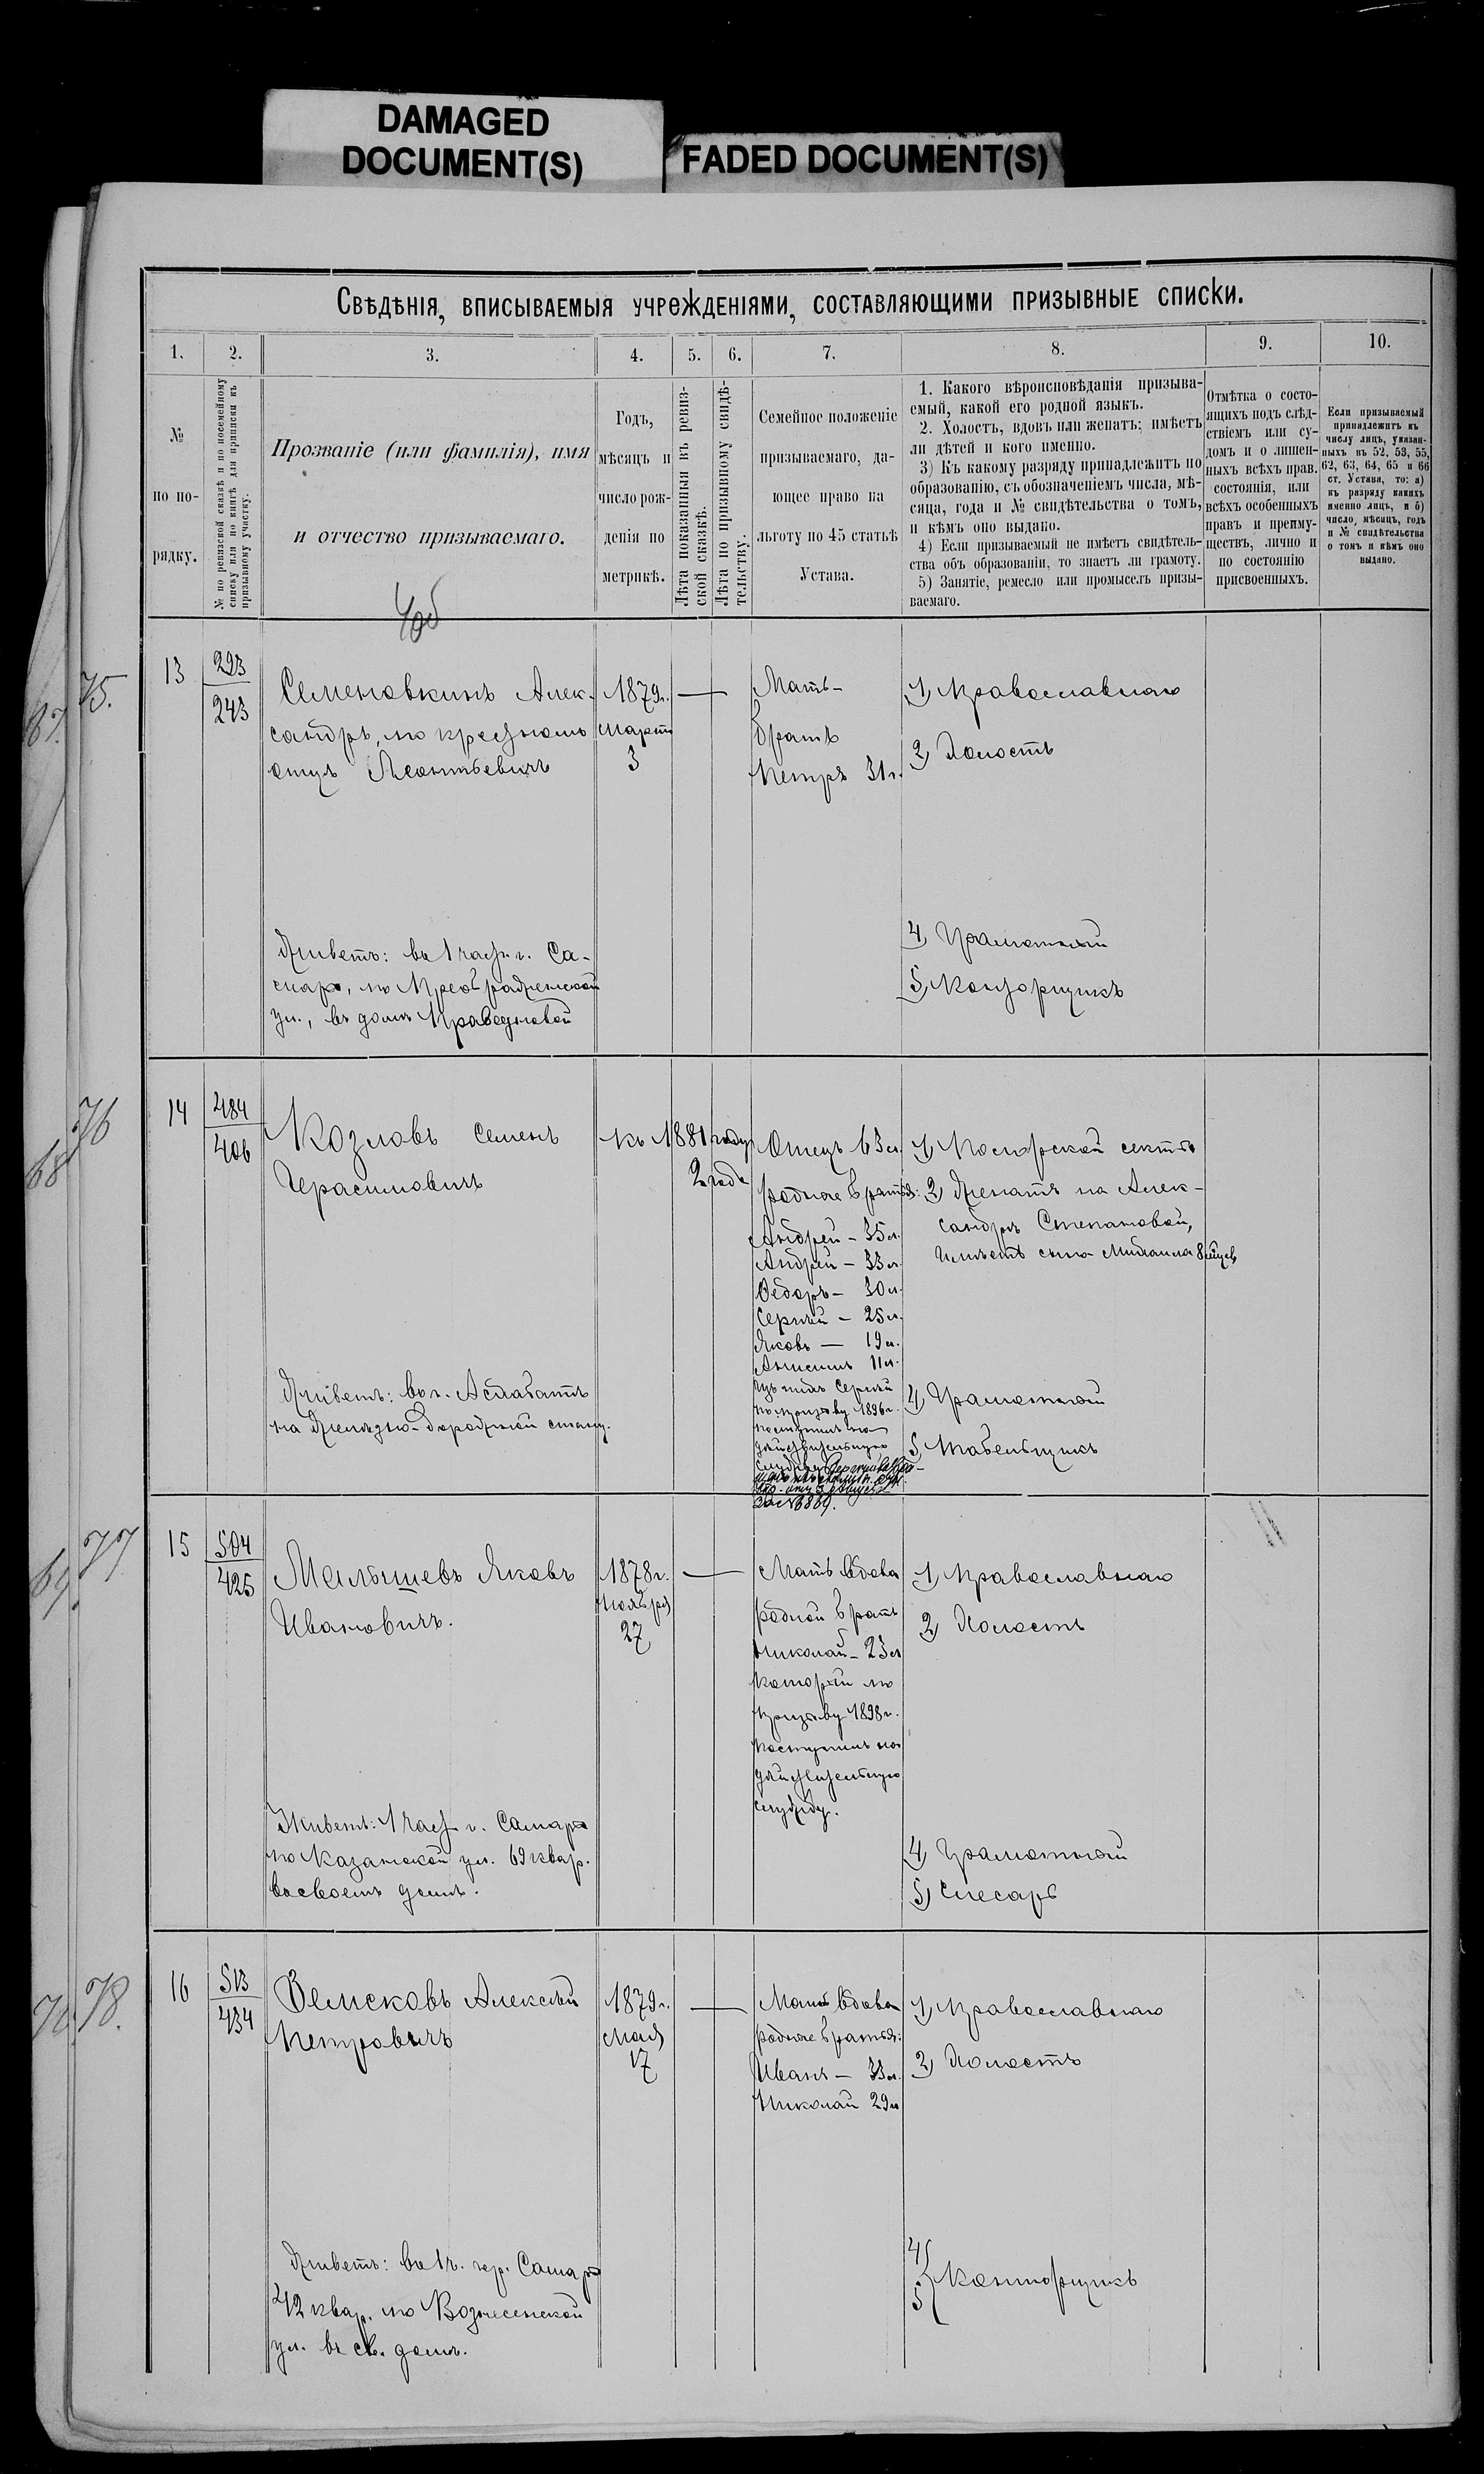 DAMAGED
DOCUMENT(S)
FADED DOCUMENT(S)
Свѣдѣнія, вписываемыя учрежденіями, составляющими призывные списки.
1. 2. 3. 4. 5. 6. 7. 8. 9. 10.
№
по по-
рядку.
№ по ревизской сказкѣ и по посемейному
списку или по книгѣ для приписки къ
призывному участку.
Прозваніе (или фамилія), имя
и отчество призываемаго.
Годъ,
мѣсяцъ и
число рож-
денія по
метрикѣ.
Лѣта показанныя въ ревиз-
ской сказкѣ.
Лѣта по призывному свидѣ-
тельству.
Семейное положеніе
призываемаго, да-
ющее право на
льготу по 45 статьѣ
Устава.
1. Какого вѣроисповѣданія призыва-
емый, какой его родной языкъ.
2. Холостъ, вдовъ или женатъ; имѣетъ
ли дѣтей и кого именно.
3) Къ какому разряду принадлежитъ по
образованію, съ обозначеніемъ числа, мѣ-
сяца, года и № свидѣтельства о томъ,
и кѣмъ оно выдано.
4) Если призываемый не имѣетъ свидѣтель-
ства объ образованіи, то знаетъ ли грамоту.
5) Занятіе, ремесло или промыселъ призы-
ваемаго.
Отмѣтка о состо-
ящихъ подъ слѣд-
ствіемъ или су-
домъ и о лишен-
ныхъ всѣхъ прав.
состоянія, или
всѣхъ особенныхъ
правъ и преиму-
ществъ, лично и
по состоянію
присвоенныхъ.
Если призываемый
принадлежитъ къ
числу лицъ, указан-
ныхъ въ 52, 53, 55,
62, 63, 64, 65 и 66
ст. Устава, то: а)
къ разряду какихъ
именно лицъ, и б)
число, мѣсяцъ, годъ
и № свидѣтельства
о томъ и кѣмъ оно
выдано.
67. 75.
13
293
243
Семеновкинъ Алек-
сандръ, по крестному
отцу Леонтьевичъ
Живетъ: въ 1 част. г. Са-
мары, по Преображенской
ул., въ домѣ Праведновой
1879 г.
Марта
3
Мать-
братъ
Петръ 31 г.
1) Православнаго
2) Холостъ
4) Грамотный
5) Конторщикъ
68 76
14
484
406
Козловъ Семенъ
Герасимовичъ
Живетъ: въ г. Асхабатѣ
на Желѣзно-дорожной станц.
Къ 1881 году
2 года
Отецъ 63 л.
родные братья:
Андрей - 35 л.
Андрей - 33 л.
Федоръ - 30 л.
Сергѣй - 25 л.
Яковъ — 19 л.
Анисимъ 11 л.
Изъ нихъ Сергѣй
по призыву 1896 г.
поступилъ на
дѣйствительную
службу
за № 6869.
1) Поморской секты
2) Женатъ на Алек-
сандрѣ Степановой,
имѣетъ сына Михаила 8 мѣсяц.
4) Грамотный
5) Табельщикъ
69. 77.
15
504
425
Малышевъ Яковъ
Ивановичъ.
Живетъ: 1 част. г. Самары
по Казанской ул. 69 квар.
во своемъ домѣ.
1878 г.
Ноября
27
Мать вдова
родной братъ
Николай - 23 л
который по
призыву 1898 г.
поступилъ на
дѣйствительную
службу.
1) Православнаго
2) Холостъ
4) Грамотный
5) Слесарь
70. 78.
16
513
434
Земсковъ Алексѣй
Петровичъ
Живетъ: въ 1 ч. гор. Самары
42 квар. по Вознесенской
ул. въ св. домѣ.
1879 г.
Мая
17
Мать вдова
родные братья:
Иванъ — 33 л.
Николай 29 л
1) Православнаго
2) Холостъ
4)
5) Конторщикъ